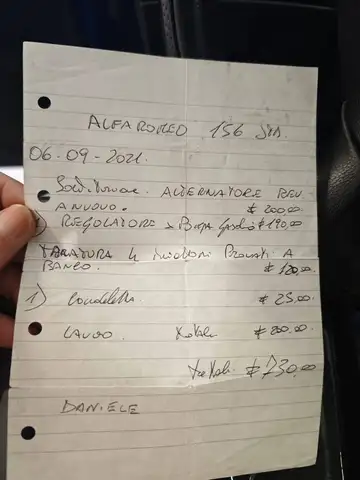 ALFA ROMEO 156 SW.
06-09-2021.
Sostituzione. ALTERNATORE REV.
A NUOVO. € 200,00.
1) REGOLATORE € 190,00
TARATURA 4 iniettori Provati A
BANCO. € 120,00.
1) Candeletta € 25,00.
LAVORO € 200.00.
totale € 730,00
DANIELE